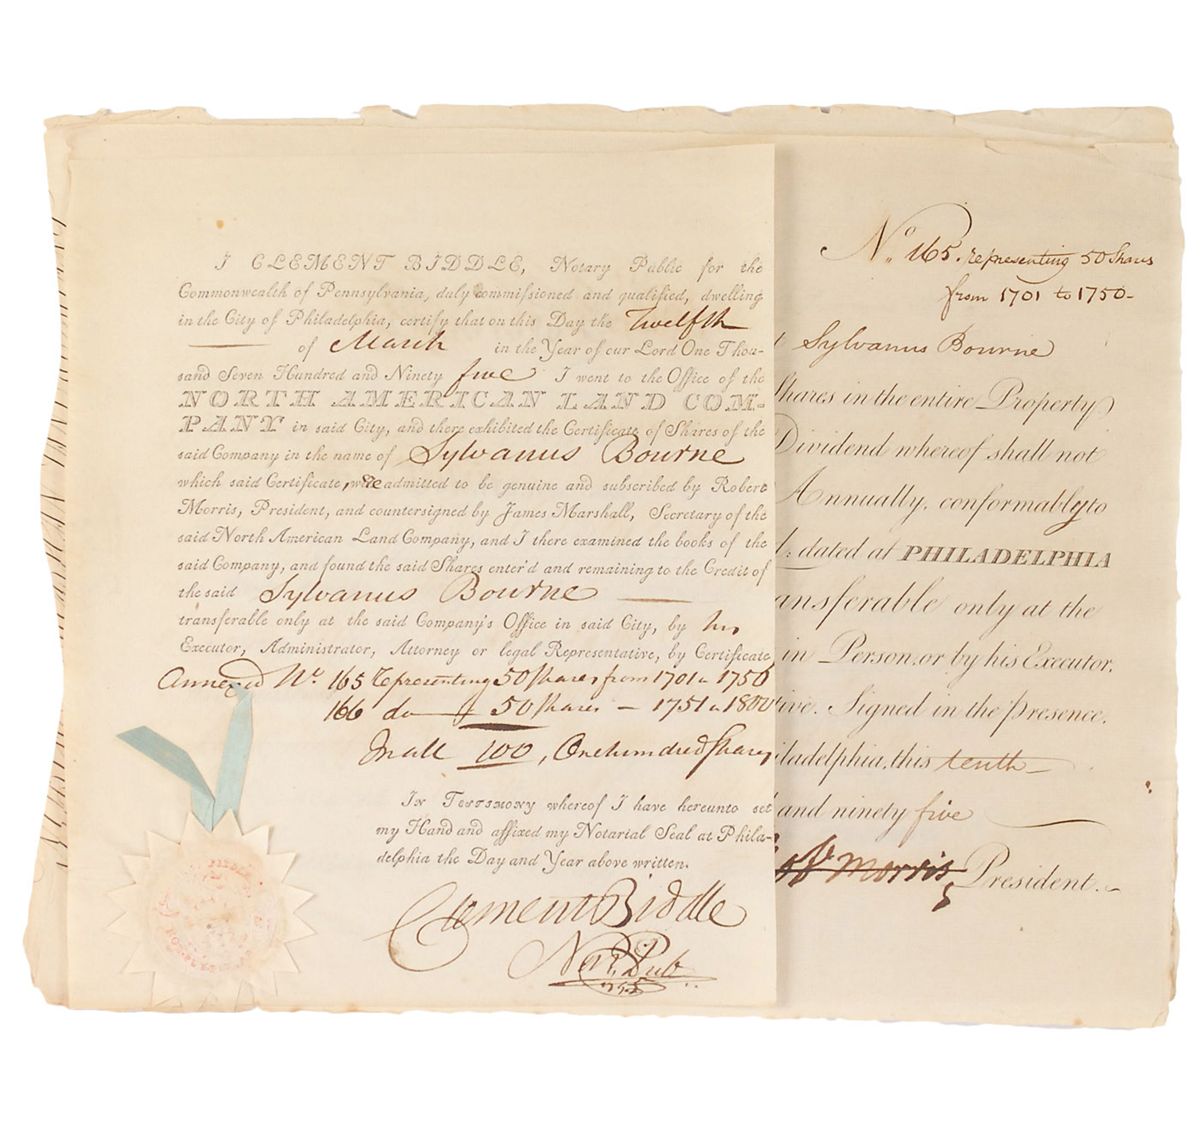 I CLEMENT BIDDLE, Notary Public for the
Commonwealth of Pennsylvania, duly commissioned and qualified, dwelling
in the City of Philadelphia, certify that on this Day the Twelfth
of March in the Year of our Lord One Thou-
sand Seven Hundred and Ninety five I went to the Office of the
NORTH AMERICAN LAND COM-
PANY in said City, and there exhibited the Certificate of Shares of the
said Company in the name of Sylvanus Bourne
which said Certificate, were admitted to be genuine and subscribed by Robert
Morris, President, and countersigned by James Marshall, Secretary of the
said North American Land Company, and I there examined the books of the
said Company, and found the said Shares enter'd and remaining to the Credit of
the said Sylvanus Bourne
transferable only at the said Company's Office in said City, by his
Executor, Administrator, Attorney or legal Representative, by Certificate
Annexed No. 165 representing 50 Shares from 1701 a 1750
166 do 50 Shares – 1751 a 1800
In all 100, One hundred Shares
In Testimony whereof I have hereunto set
my Hand and affixed my Notarial Seal at Phila-
delphia the Day and Year above written.
Clement Biddle
Not. Pub
1795
No. 165. representing 50 Shares
from 1701 to 1750-
t Sylvanus Bourne
Shares in the entire Property
Dividend whereof shall not
Annually, conformably to
l: dated at PHILADELPHIA
ansferable only at the
in Person, or by his Executor,
tive. Signed in the presence
iladelphia, this tenth
and ninety five
Rob Morris President.